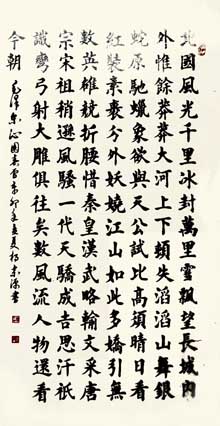 北國風光千里冰封萬里雪飄望長城內
外惟餘莽莽大河上下頓失滔滔山舞銀
蛇原馳蠟象欲與天公試比高須晴日看
紅裝素裹分外妖嬈江山如此多嬌引無
數英雄競折腰惜秦皇漢武略輸文采唐
宗宋祖稍遜風騷一代天驕成吉思汗祇
識彎弓射大雕俱往矣數風流人物還看
今朝 毛澤東沁園春雪辛卯年立夏書